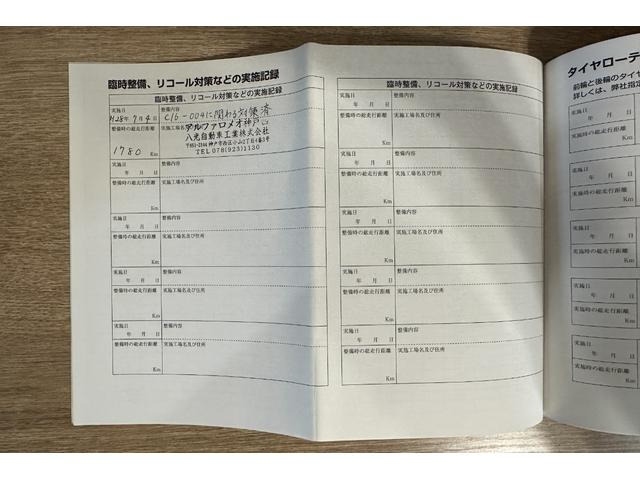 臨時整備、リコール対策などの実施記録
臨時整備、リコール対策などの実施記録
実施日 整備内容
H28年 7月 4日 C16-004に関わる対策済
整備時の総走行距離 実施工場名及び住所
アルファロメオ神戸
八光自動車工業株式会社
〒651-2144 神戸市西区小山2丁目1番3号
1780 Km TEL 078(923)1130
実施日 整備内容
年 月 日
整備時の総走行距離 実施工場名及び住所
Km
実施日 整備内容
年 月 日
整備時の総走行距離 実施工場名及び住所
Km
実施日 整備内容
年 月 日
整備時の総走行距離 実施工場名及び住所
Km
実施日 整備内容
年 月 日
整備時の総走行距離 実施工場名及び住所
Km
臨時整備、リコール対策などの実施記録
実施日 整備内容
年 月 日
整備時の総走行距離 実施工場名及び住所
Km
実施日 整備内容
年 月 日
整備時の総走行距離 実施工場名及び住所
Km
実施日 整備内容
年 月 日
整備時の総走行距離 実施工場名及び住所
Km
実施日 整備内容
年 月 日
整備時の総走行距離 実施工場名及び住所
Km
実施日 整備内容
年 月 日
整備時の総走行距離 実施工場名及び住所
Km
タイヤローテ
前輪と後輪のタイヤ
詳しくは、弊社指定
実施日
年 月 日
実施時の総走行距離
Km
実施日
年 月 日
実施時の総走行距離
Km
実施日
年 月 日
実施時の総走行距離
Km
実施日
年 月 日
実施時の総走行距離
Km
実施日
年 月 日
実施時の総走行距離
Km